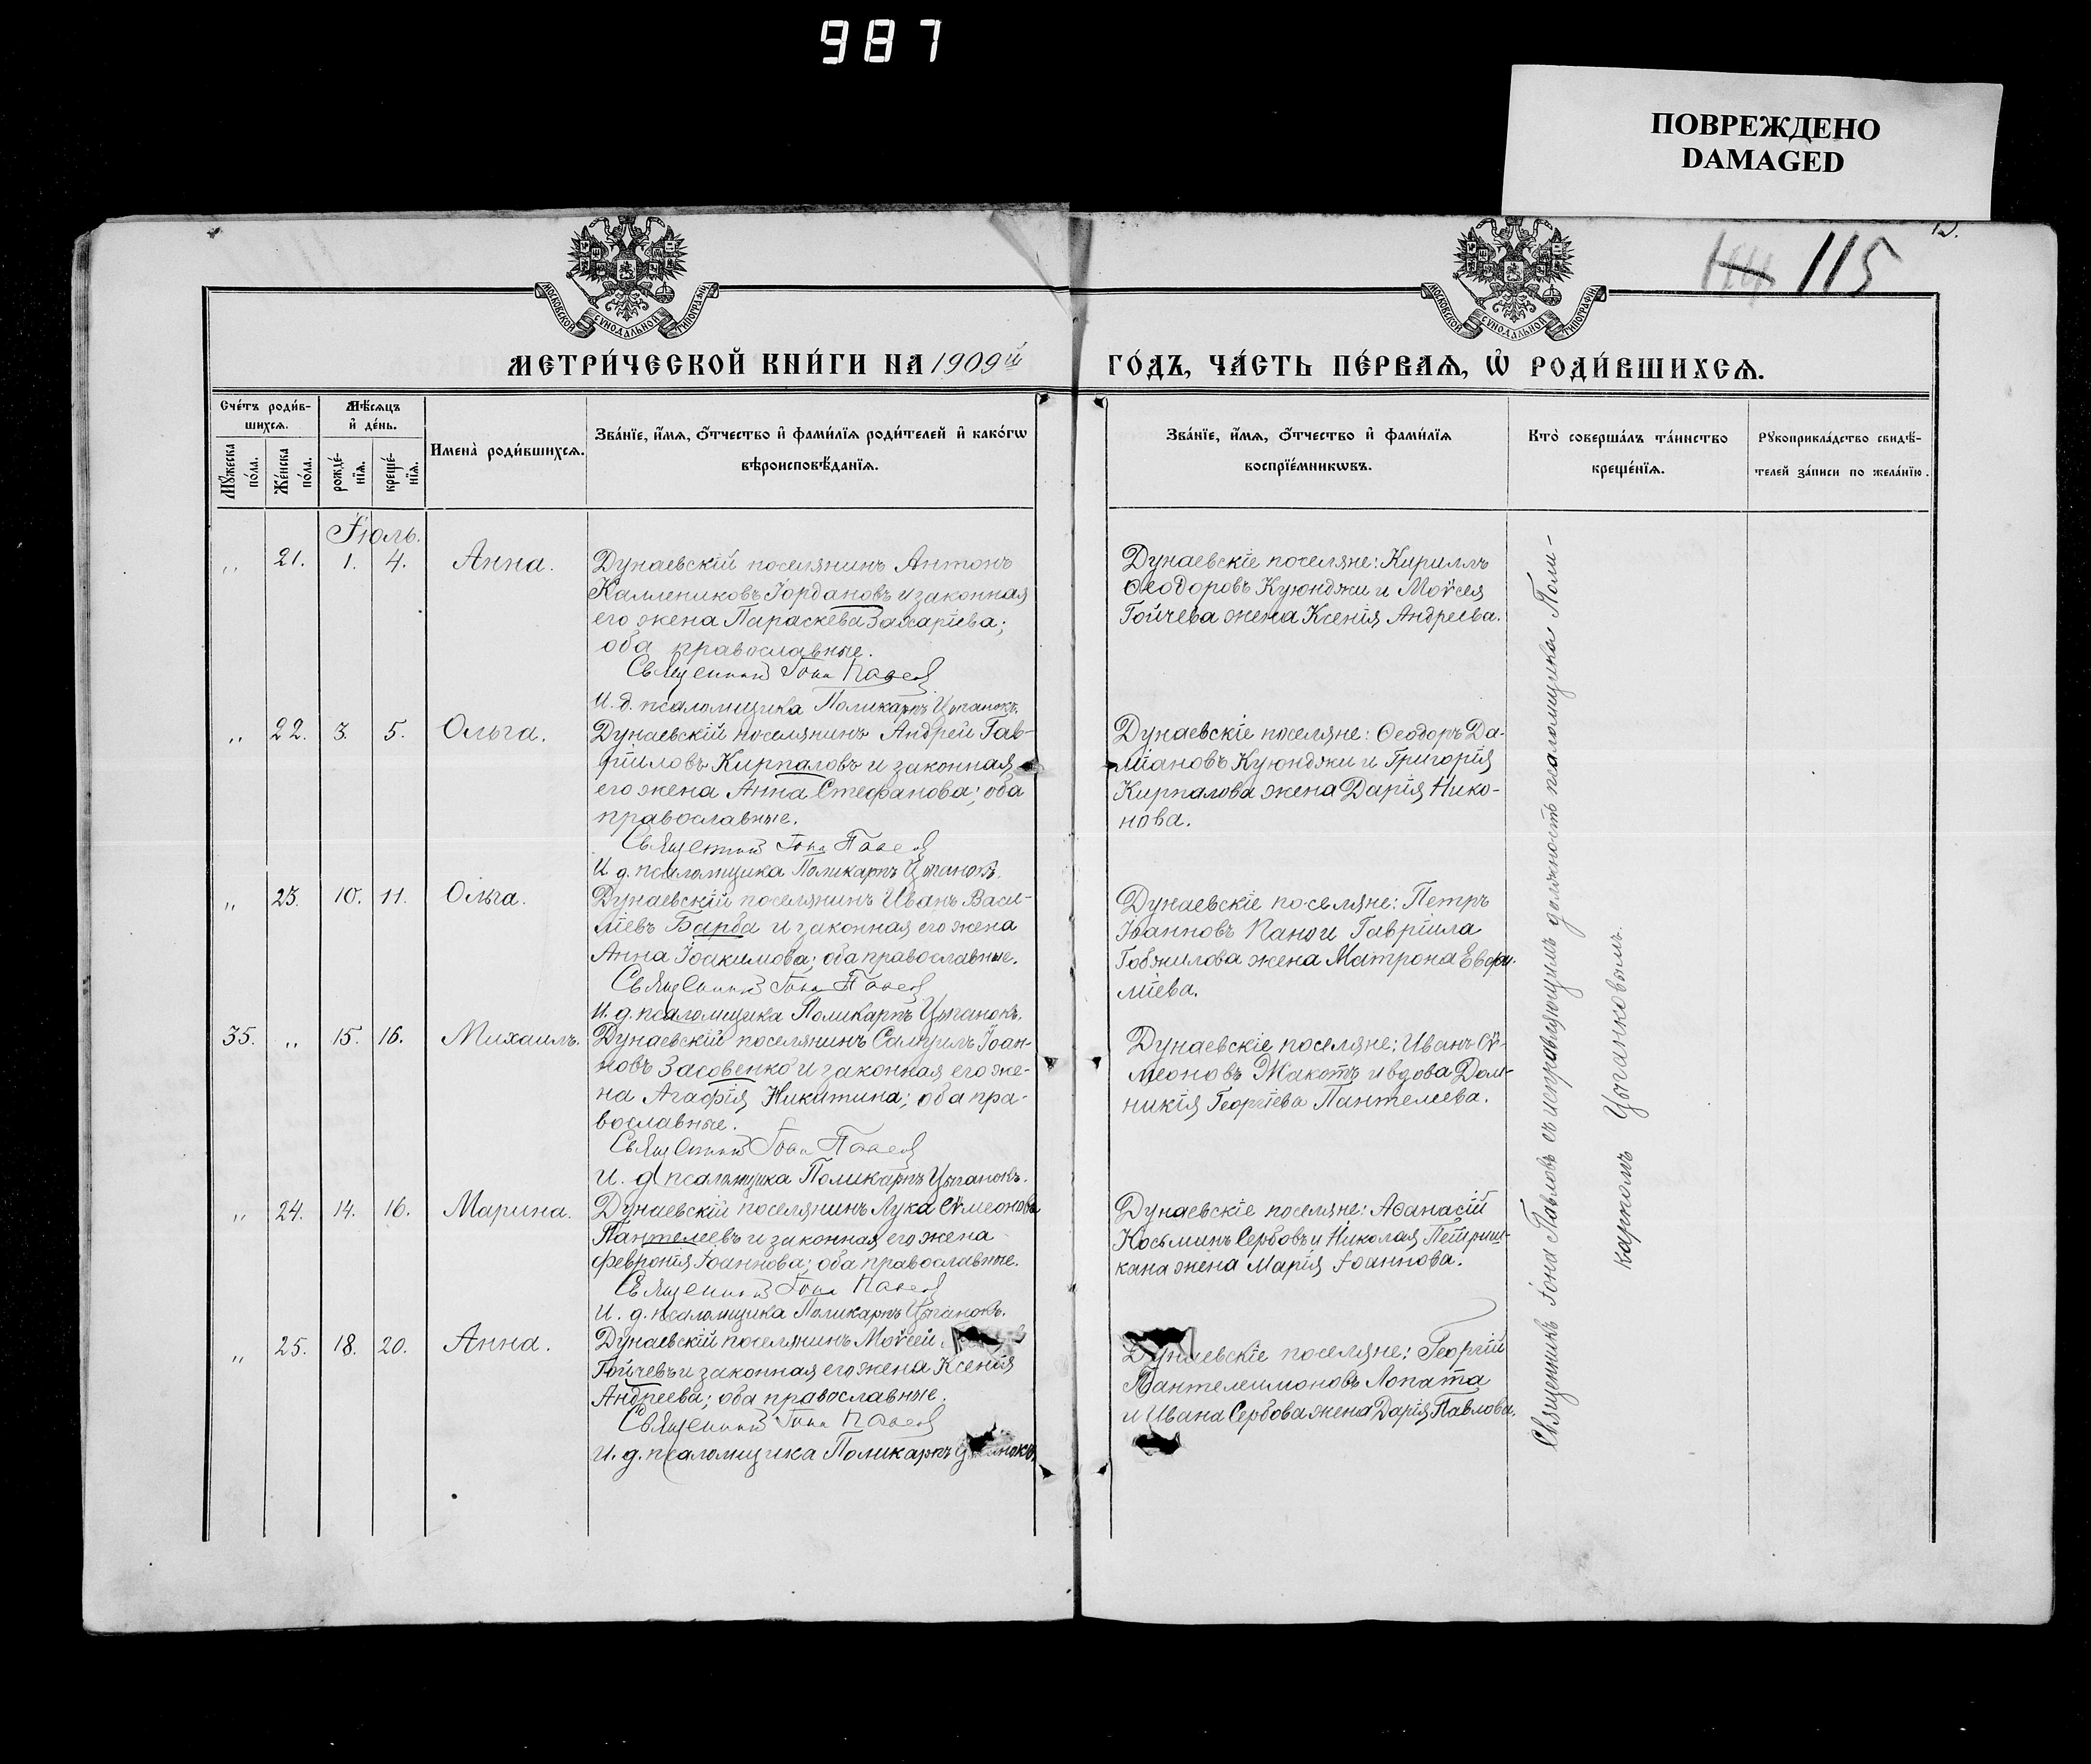 987
ПОВРЕЖДЕНО
DAMAGED
115
МОСКОВСКОЙ СѴНОДАЛЬНОЙ ТИПОГРАФІИ
МОСКОВСКОЙ СѴНОДАЛЬНОЙ ТИПОГРАФІИ
МЕТРИ́ЧЕСКОЙ КНИ́ГИ НА 1909й
ГО́ДЪ, ЧА́СТЬ ПЕ́РВАѦ, Ѽ РОДИ́ВШИХСѦ.
Сче́тъ роди́в-
шихсѧ.
Мѣ́сѧцъ
и҆ де́нь.
Мꙋ́жеска по́ла.
Же́нска по́ла.
рожде́-нїѧ.
креще́-нїѧ.
Имена̀ роди́вшихсѧ.
Зва́нїе, и҆́мѧ, ѻ҆́тчество и҆ фами́лїѧ роди́телей и҆ како́гѡ
вѣроисповѣ́данїѧ.
Зва́нїе, и҆́мѧ, ѻ҆́тчество и҆ фами́лїѧ
воспрїе́мникѡвъ.
Кто̀ соверша́лъ та́инство
креще́нїѧ.
Рꙋкоприкла́дство свидѣ́-
телей за́писи по жела́нїю.
Іюль.
„ 21. 1. 4. Анна.
Дунаевскій поселянинъ Антонъ
Каллениковъ Іордановъ и законная
его жена Параскева Захаріева;
оба православные.
Священникъ Іона Павлов
И. д. псаломщика Поликарпъ Цыганокъ.
Дунаевскіе поселяне: Кириллъ
Ѳеодоровъ Куюнджи и Моѵсея
Гойчева жена Ксенія Андреева.
„ 22. 3. 5. Ольга.
Дунаевскій поселянинъ Андрей Гав-
ріиловъ Кирпаловъ и законная
его жена Анна Стефанова; оба
православные.
Священникъ Іона Павлов
И д. псаломщика Поликарпъ Цыганокъ.
Дунаевскіе поселяне: Ѳеодоръ Да-
міановъ Куюнджи и Григорія
Кирпалова жена Дарія Нико-
нова.
„ 23. 10. 11. Ольга.
Дунаевскій поселянинъ Иванъ Васи-
ліевъ Барба и законная его жена
Анна Іоакимова; оба православные.
Священникъ Іона Павлов
И. д. псаломщика Поликарпъ Цыганокъ.
Дунаевскіе поселяне: Петръ
Іоанновъ Пано и Гавріила
Гобжилова жена Матрона Евфи-
міева.
35. „ 15. 16. Михаилъ.
Дунаевскій поселянинъ Самуилъ Іоан-
новъ Засовенко и законная его же-
на Агафія Никитина; оба пра-
вославные.
Священникъ Іона Павлов
И. д. псаломщика Поликарпъ Цыганокъ.
Дунаевскіе поселяне: Иванъ Сѵ-
меоновъ Жакотъ и вдова Дом-
никія Георгіева Пантелеева.
„ 24. 14. 16. Марина.
Дунаевскій поселянинъ Лука Сѵмеоновъ
Пантелеевъ и законная его жена
Февронія Іоаннова; оба православные.
Священникъ Іона Павлов
И. д. псаломщика Поликарпъ Цыганокъ.
Дунаевскіе поселяне: Аѳанасій
Косьминъ Сербовъ и Николая Петриш-
кана жена Марія Іоаннова.
„ 25. 18. 20. Анна.
Дунаевскій поселянинъ Моѵсей
Гойчевъ и законная его жена Ксенія
Андреева; оба православные.
Священникъ Іона Павлов
И. д. псаломщика Поликарпъ Цыганокъ.
Дунаевскіе поселяне: Георгій
Пантелеимоновъ Лопата
и Ивана Сербова жена Дарія Павлова.
Священникъ Іона Павловъ съ исправляющимъ должность псаломщика Поли-
карпомъ Цыганковымъ.